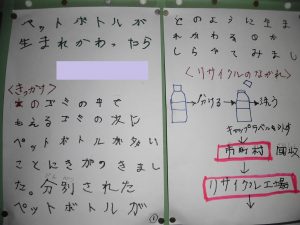 ペットボトルが
生まれかわったら
<きっかけ>
木のゴミの中で
もえるゴミの次に
ペットボトルが多い
ことにきがつきまし
た。分別された
ペットボトルが
①
どのように生ま
れかわるのか
しらべてみまし
<リサイクルのながれ>
分ける
洗う
キャップラベルをはずす
市町村
回収
リサイクル工場